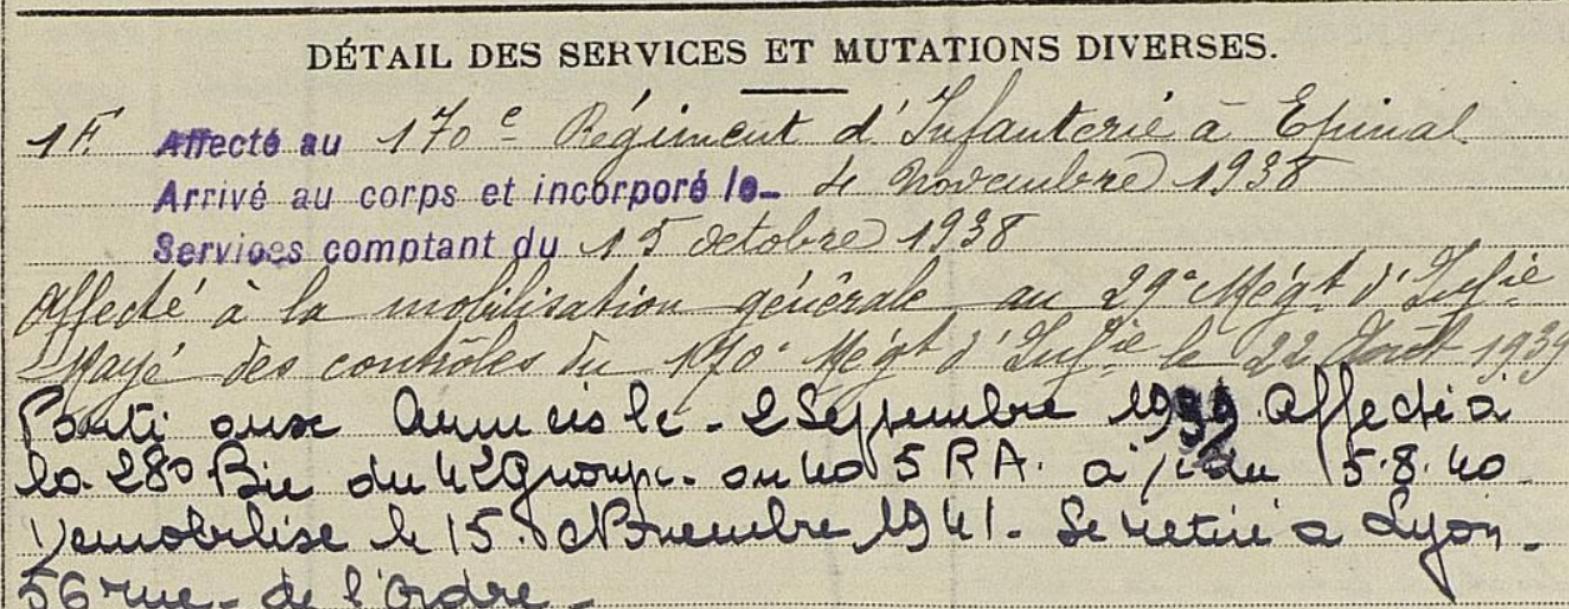 DÉTAIL DES SERVICES ET MUTATIONS DIVERSES.
Affecté au 170e Régiment d'Infanterie à Epinal
Arrivé au corps et incorporé le 4 Novembre 1938
Services comptant du 15 octobre 1938
Affecté à la mobilisation générale au 29e Régt d'Infie
Rayé des contrôles du 170e Régt d'Infie le 22 Août 1939
Parti aux Armées le 2 Septembre 1939 Affecté à
la 28e Bie du 42 Groupe. 5 RA. à /c du 5.8.40
Démobilisé le 15. Novembre 1941. Se retire à Lyon.
56 rue de l'Ordre